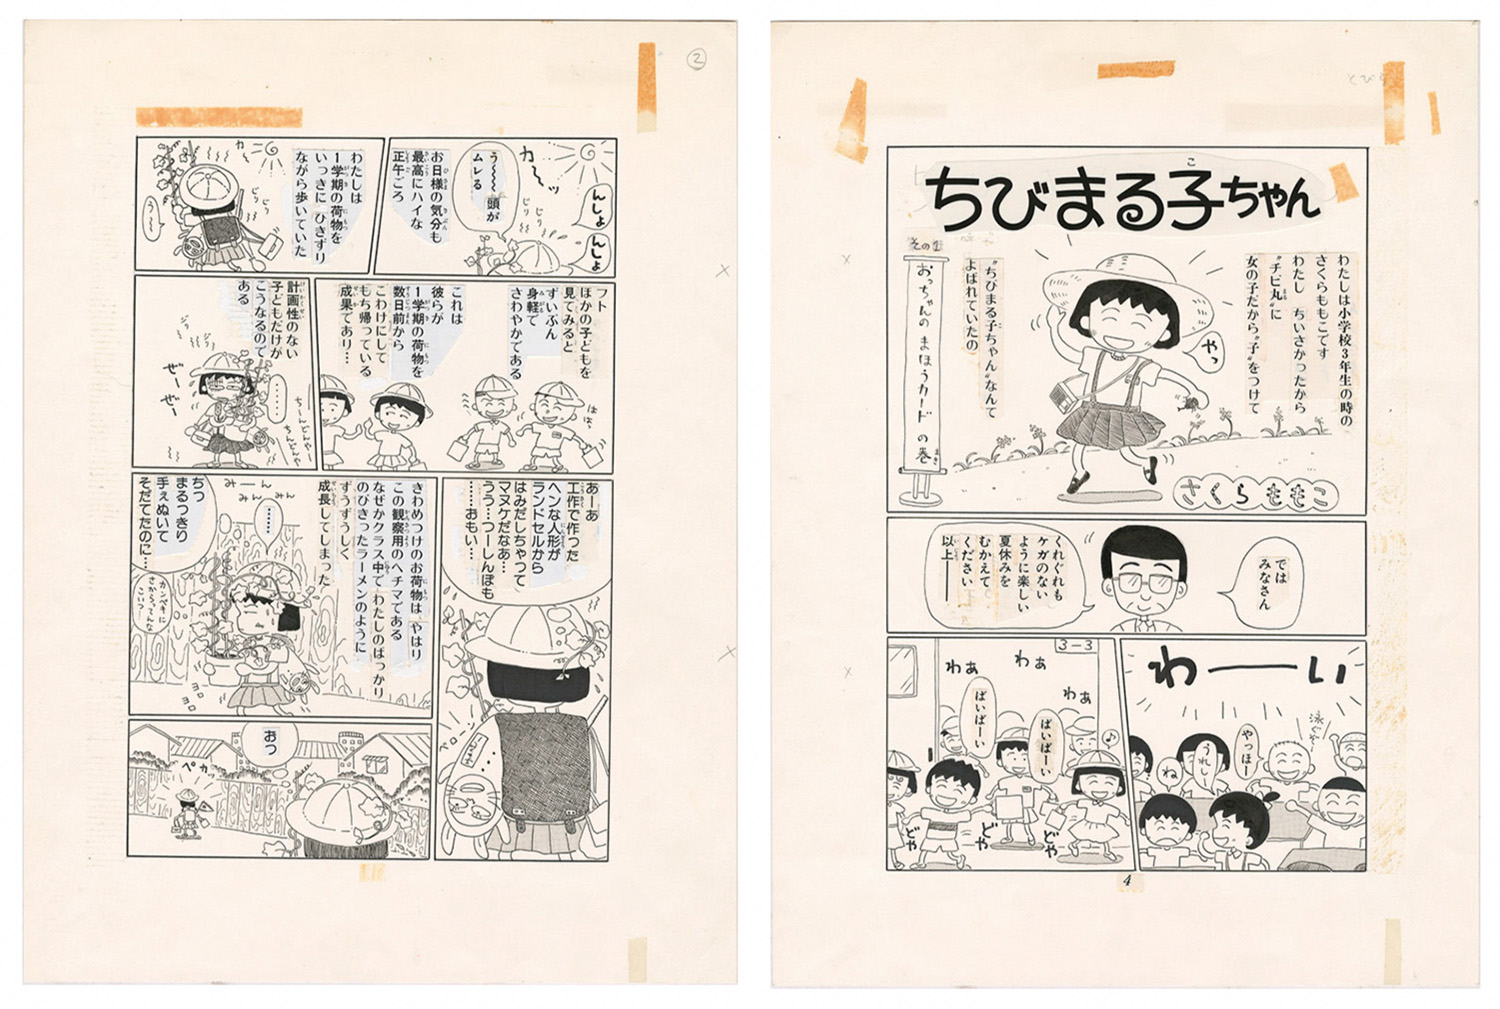 とびら
ちびまる子ちゃん
こ
わたしは小学校3年生の時の
さくらももこです
わたし ちいさかったから
〝チビ丸〟に
女の子だから〝子〟をつけて
〝ちびまる子ちゃん〟なんて
よばれていたの
やっ
おっちゃんのまほうカードの巻
さくらももこ
では
みなさん
くれぐれも
ケガのない
ように楽しい
夏休みを
むかえて
ください
以上――
わーーい
やっほー
うれしー
ね
3-3
わぁ
わぁ
わぁ
ばいばーい
ばいばーい
どや
どや
どや
4
2
カーッ
んしょ
んしょ
う〜〜〜頭が
ムレる
じり
じり
お日様の気分も
最高にハイな
正午ごろ
カー
わたしは
1学期の荷物を
いっきに ひきずり
ながら歩いていた
じり
じり
う〜
フト
ほかの子どもを
見てみると
ずいぶん
身軽で
さわやかである
これは
彼らが
1学期の荷物を
数日前から
こわけにして
もち帰っている
成果であり…
はは
計画性のない
子どもだけが
こうなるので
ある
ぜーぜー
……
ちーんどんやー
ちんどんやー
あーあ
工作で作った
ヘンな人形が
ランドセルから
はみだしちゃって
マヌケだなあ…
うう…つーしんぼも
……おもい…
ベローン
きわめつけのお荷物は やはり
この観察用のヘチマである
なぜかクラス中で わたしのばっかり
のびきったラーメンのように
ずうずうしく
成長してしまった
みーん
みんみん
……
ちっ
まるっきり
手ぇぬいて
そだてたのに…
カンペキに
さからってんな
こいつ
ヨロ
ヨロ
おっ
ペカッ